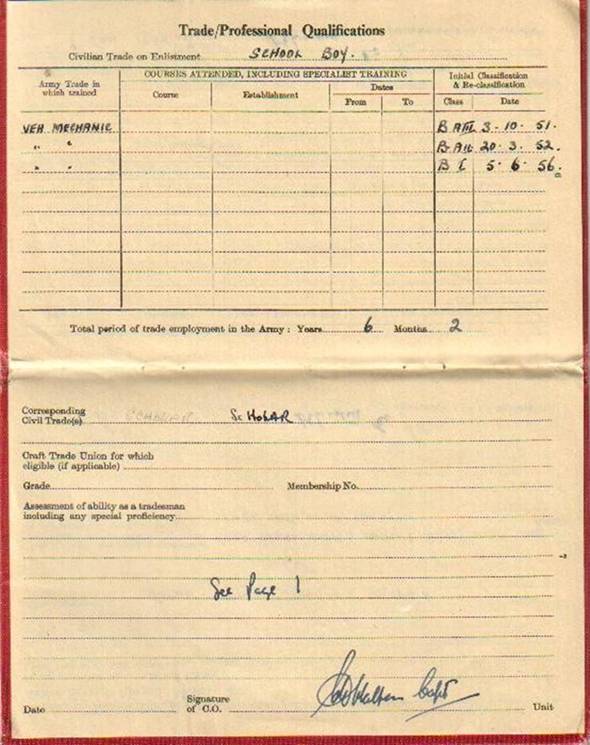 Trade/Professional Qualifications
Civilian Trade on Enlistment SCHOOL BOY.
Army Trade in which trained
COURSES ATTENDED, INCLUDING SPECIALIST TRAINING
Initial Classification & Re-classification
Course Establishment Dates
From To Class Date
VEH MECHANIC B AIII 3 - 10 - 51.
" " B AII 20 - 3 - 52.
" " B I 5 - 6 - 56.
Total period of trade employment in the Army : Years 6 Months 2
Corresponding
Civil Trade(s) SCHOLAR
Craft Trade Union for which
eligible (if applicable)
Grade Membership No.
Assessment of ability as a tradesman
including any special proficiency
See Page 1
Signature
Date of C.O. Capt Unit